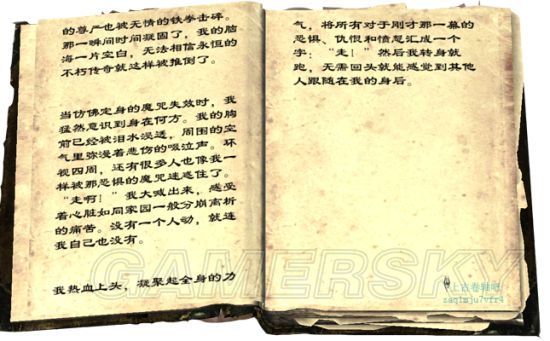 的尊严也被无情的铁拳击碎。
那一瞬间时间凝固了，我的脑
海一片空白，无法相信永恒的
不朽传奇就这样被推倒了。
当仿佛定身的魔咒失效时，我
猛然意识到身在何方。我的胸
前已经被泪水浸透，周围的空
气里弥漫着悲伤的吸泣声。环
视四周，还有很多人也像我一
样被那恐惧的魔咒迷惑住了。
“走啊！”我大喊出来，感受
着心脏如同家园一般分崩离析
的痛苦。没有一个人动，就连
我自己也没有。
我热血上头，凝聚起全身的力
气，将所有对于刚才那一幕的
恐惧、仇恨和愤怒汇成一个
字：“走！”然后我转身就
跑，无需回头就能感觉到其他
人跟随在我的身后。
GAMERSKY
上古卷轴吧
zaq1mju7vfr4